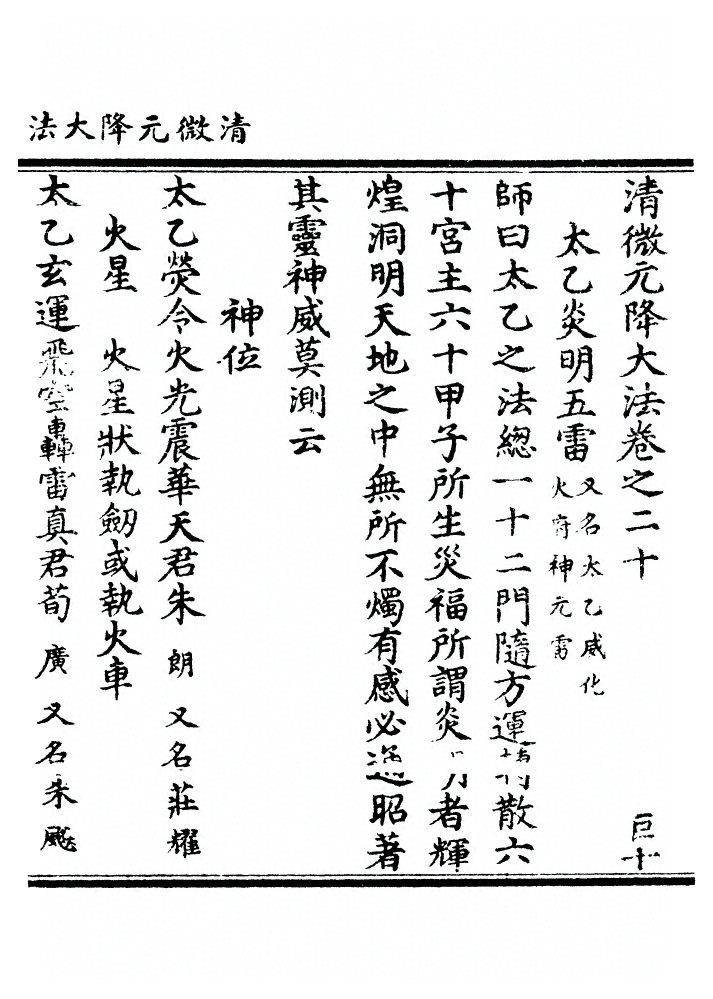 清微元降大法
清微元降大法卷之二十 巨十
太乙炎明五雷 又名太乙威化
火府神元雷
師曰太乙之法總一十二門隨方運散六
十宮主六十甲子所生災福所謂炎明者輝
煌洞明天地之中無所不燭有感必通昭著
其靈神威莫測云
神位
太乙熒令火光震華天君朱 朗 又名莊耀
火星 火星狀執劒或執火車
太乙玄運飛空轟雷真君荀 廣 又名朱飈